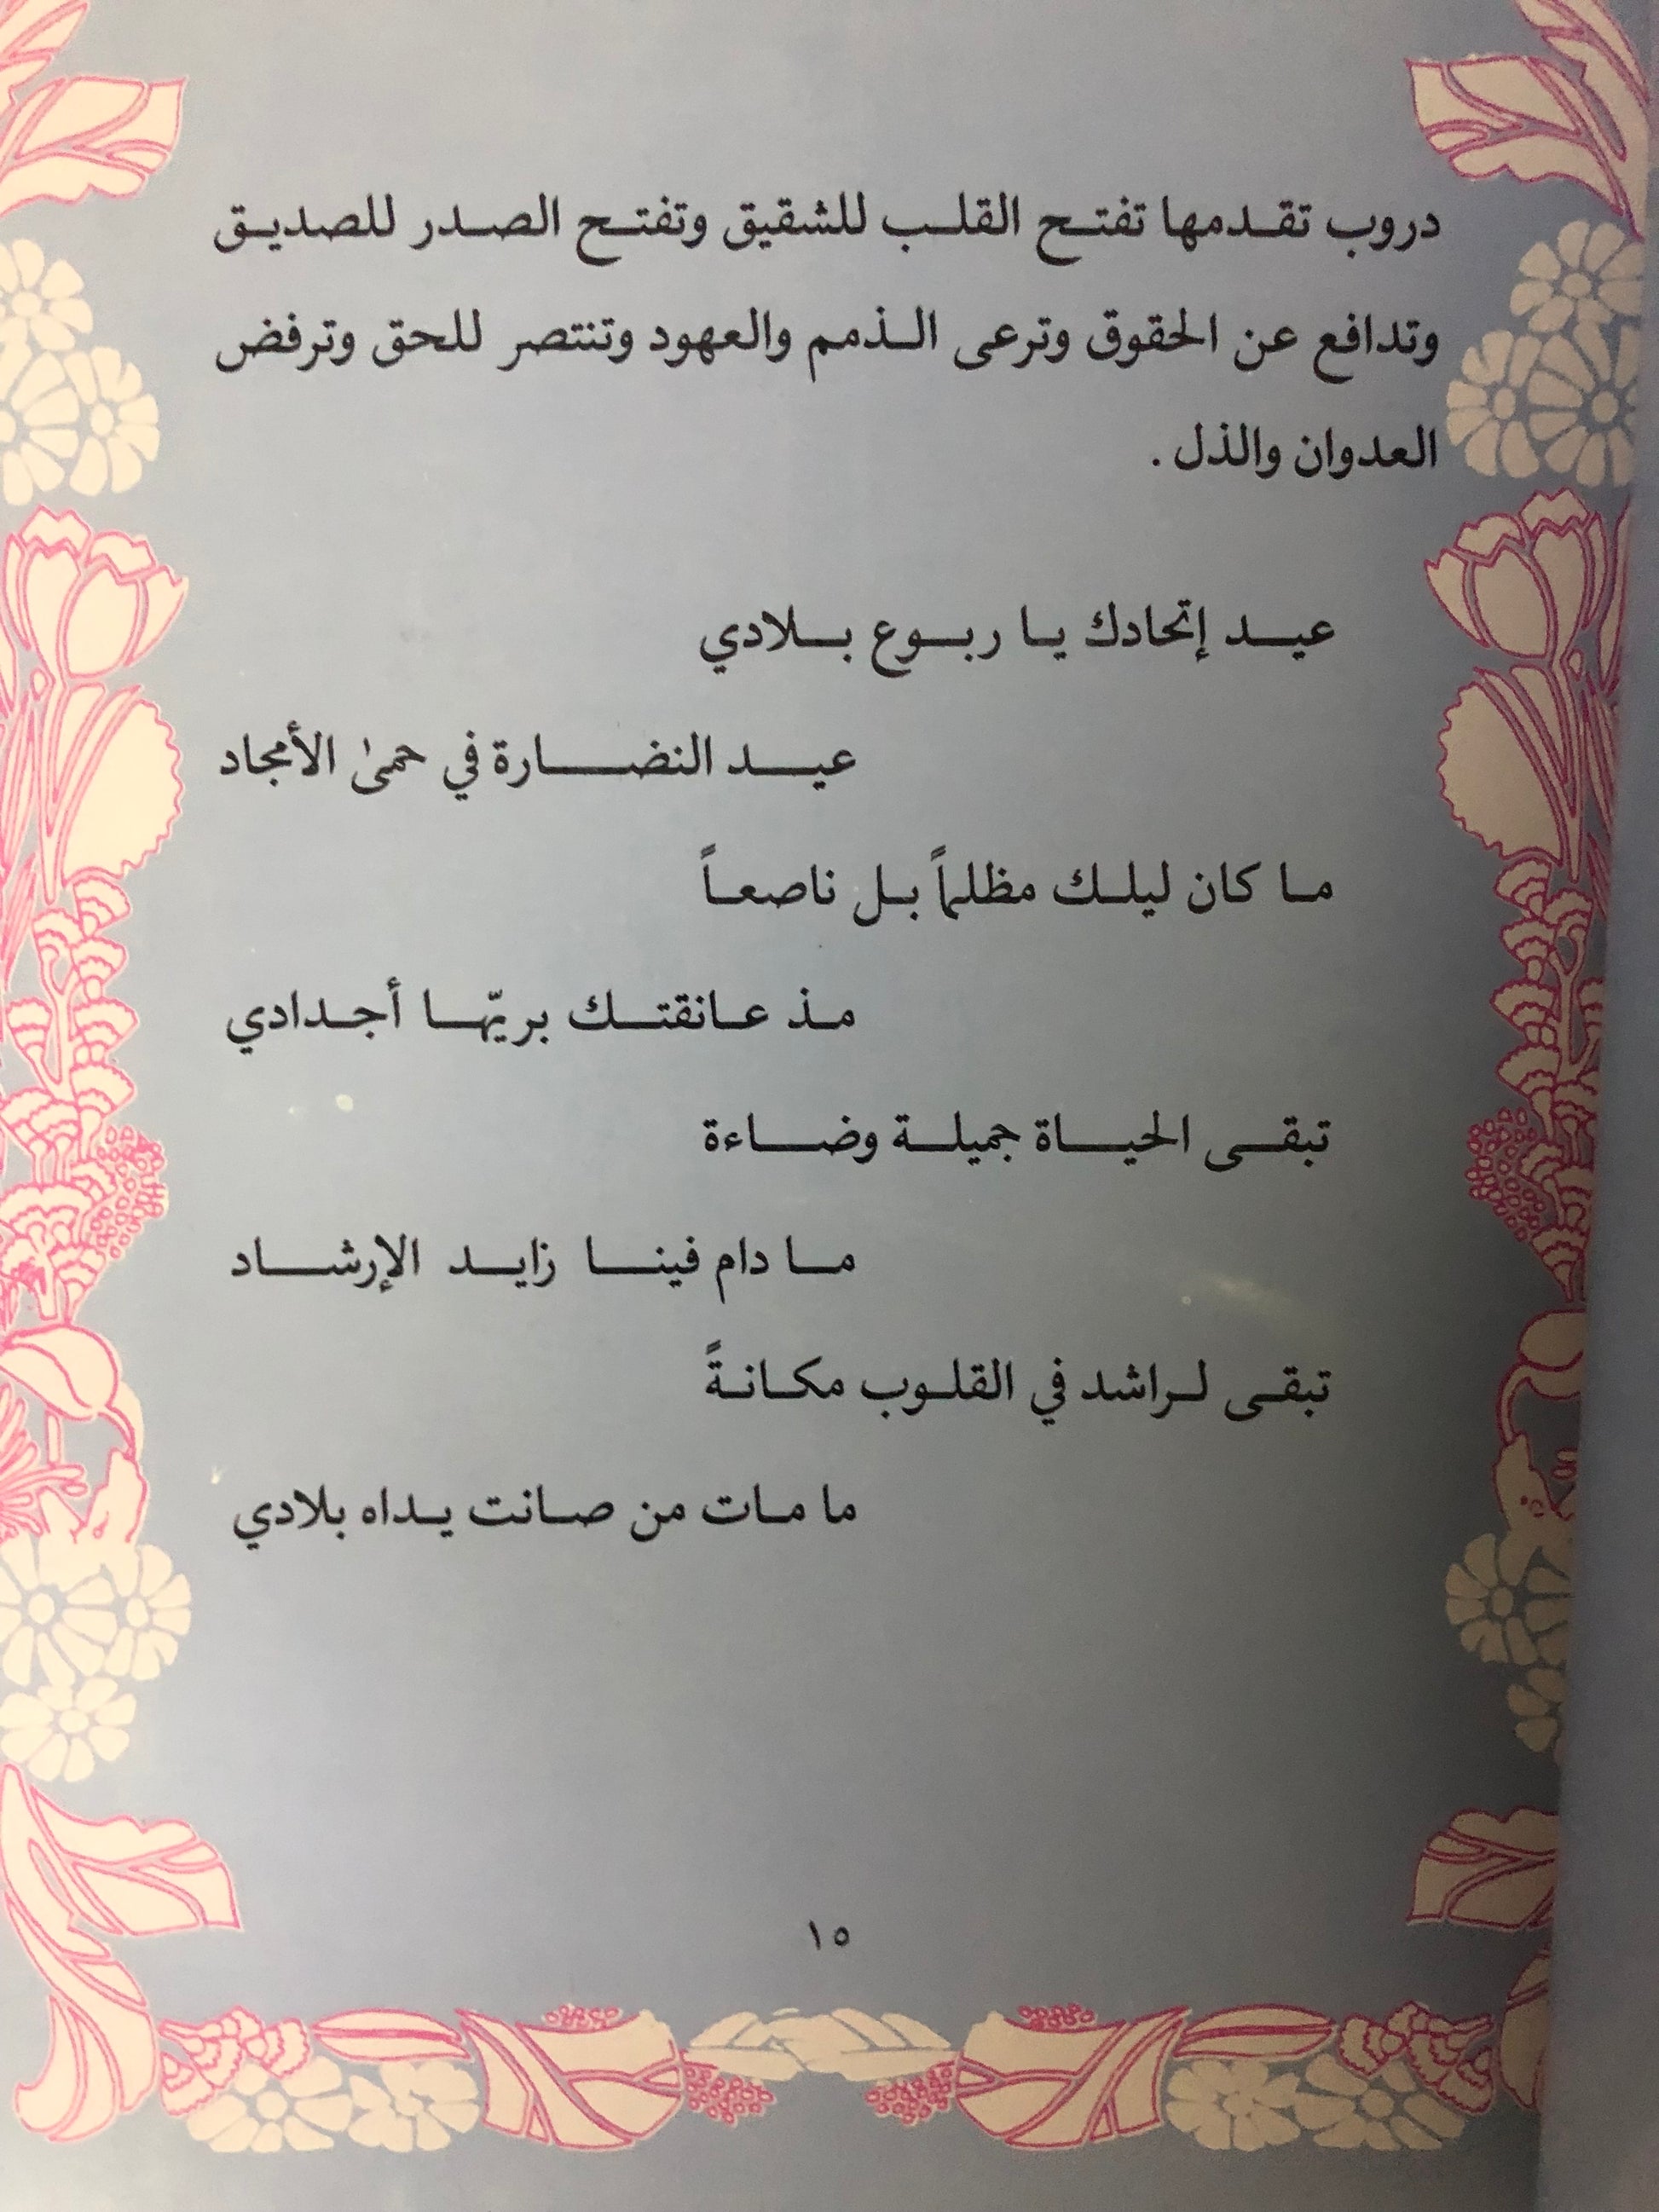 دروب تقدمها تفتح القلب للشقيق وتفتح الصدر للصديق
وتدافع عن الحقوق وترعى الذمم والعهود وتنتصر للحق وترفض
العدوان والذل .
عيد إتحادك يا ربوع بلادي
عيد النضارة في حمىٰ الأمجاد
ما كان ليلك مظلماً بل ناصعاً
مذ عانقتك بريّها أجدادي
تبقى الحياة جميلة وضاءة
ما دام فينا زايد الإرشاد
تبقى لراشد في القلوب مكانةً
ما مات من صانت يداه بلادي
١٥